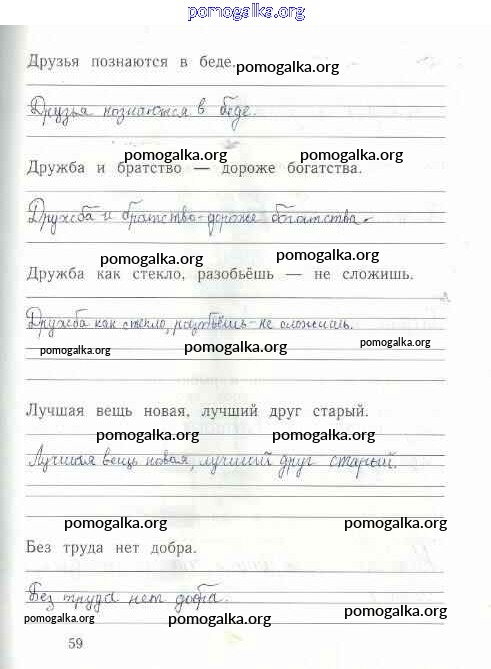 pomogalka.org
Друзья познаются в беде. pomogalka.org
Друзья познаются в беде.
pomogalka.org pomogalka.org
Дружба и братство — дороже богатства.
Дружба и братство - дороже богатства.
pomogalka.org pomogalka.org
Дружба как стекло, разобьёшь — не сложишь.
Дружба как стекло, разобьёшь - не сложишь.
pomogalka.org pomogalka.org pomogalka.org
Лучшая вещь новая, лучший друг старый.
pomogalka.org pomogalka.org
Лучшая вещь новая, лучший друг старый.
pomogalka.org pomogalka.org
Без труда нет добра.
Без труда нет добра.
pomogalka.org pomogalka.org
59